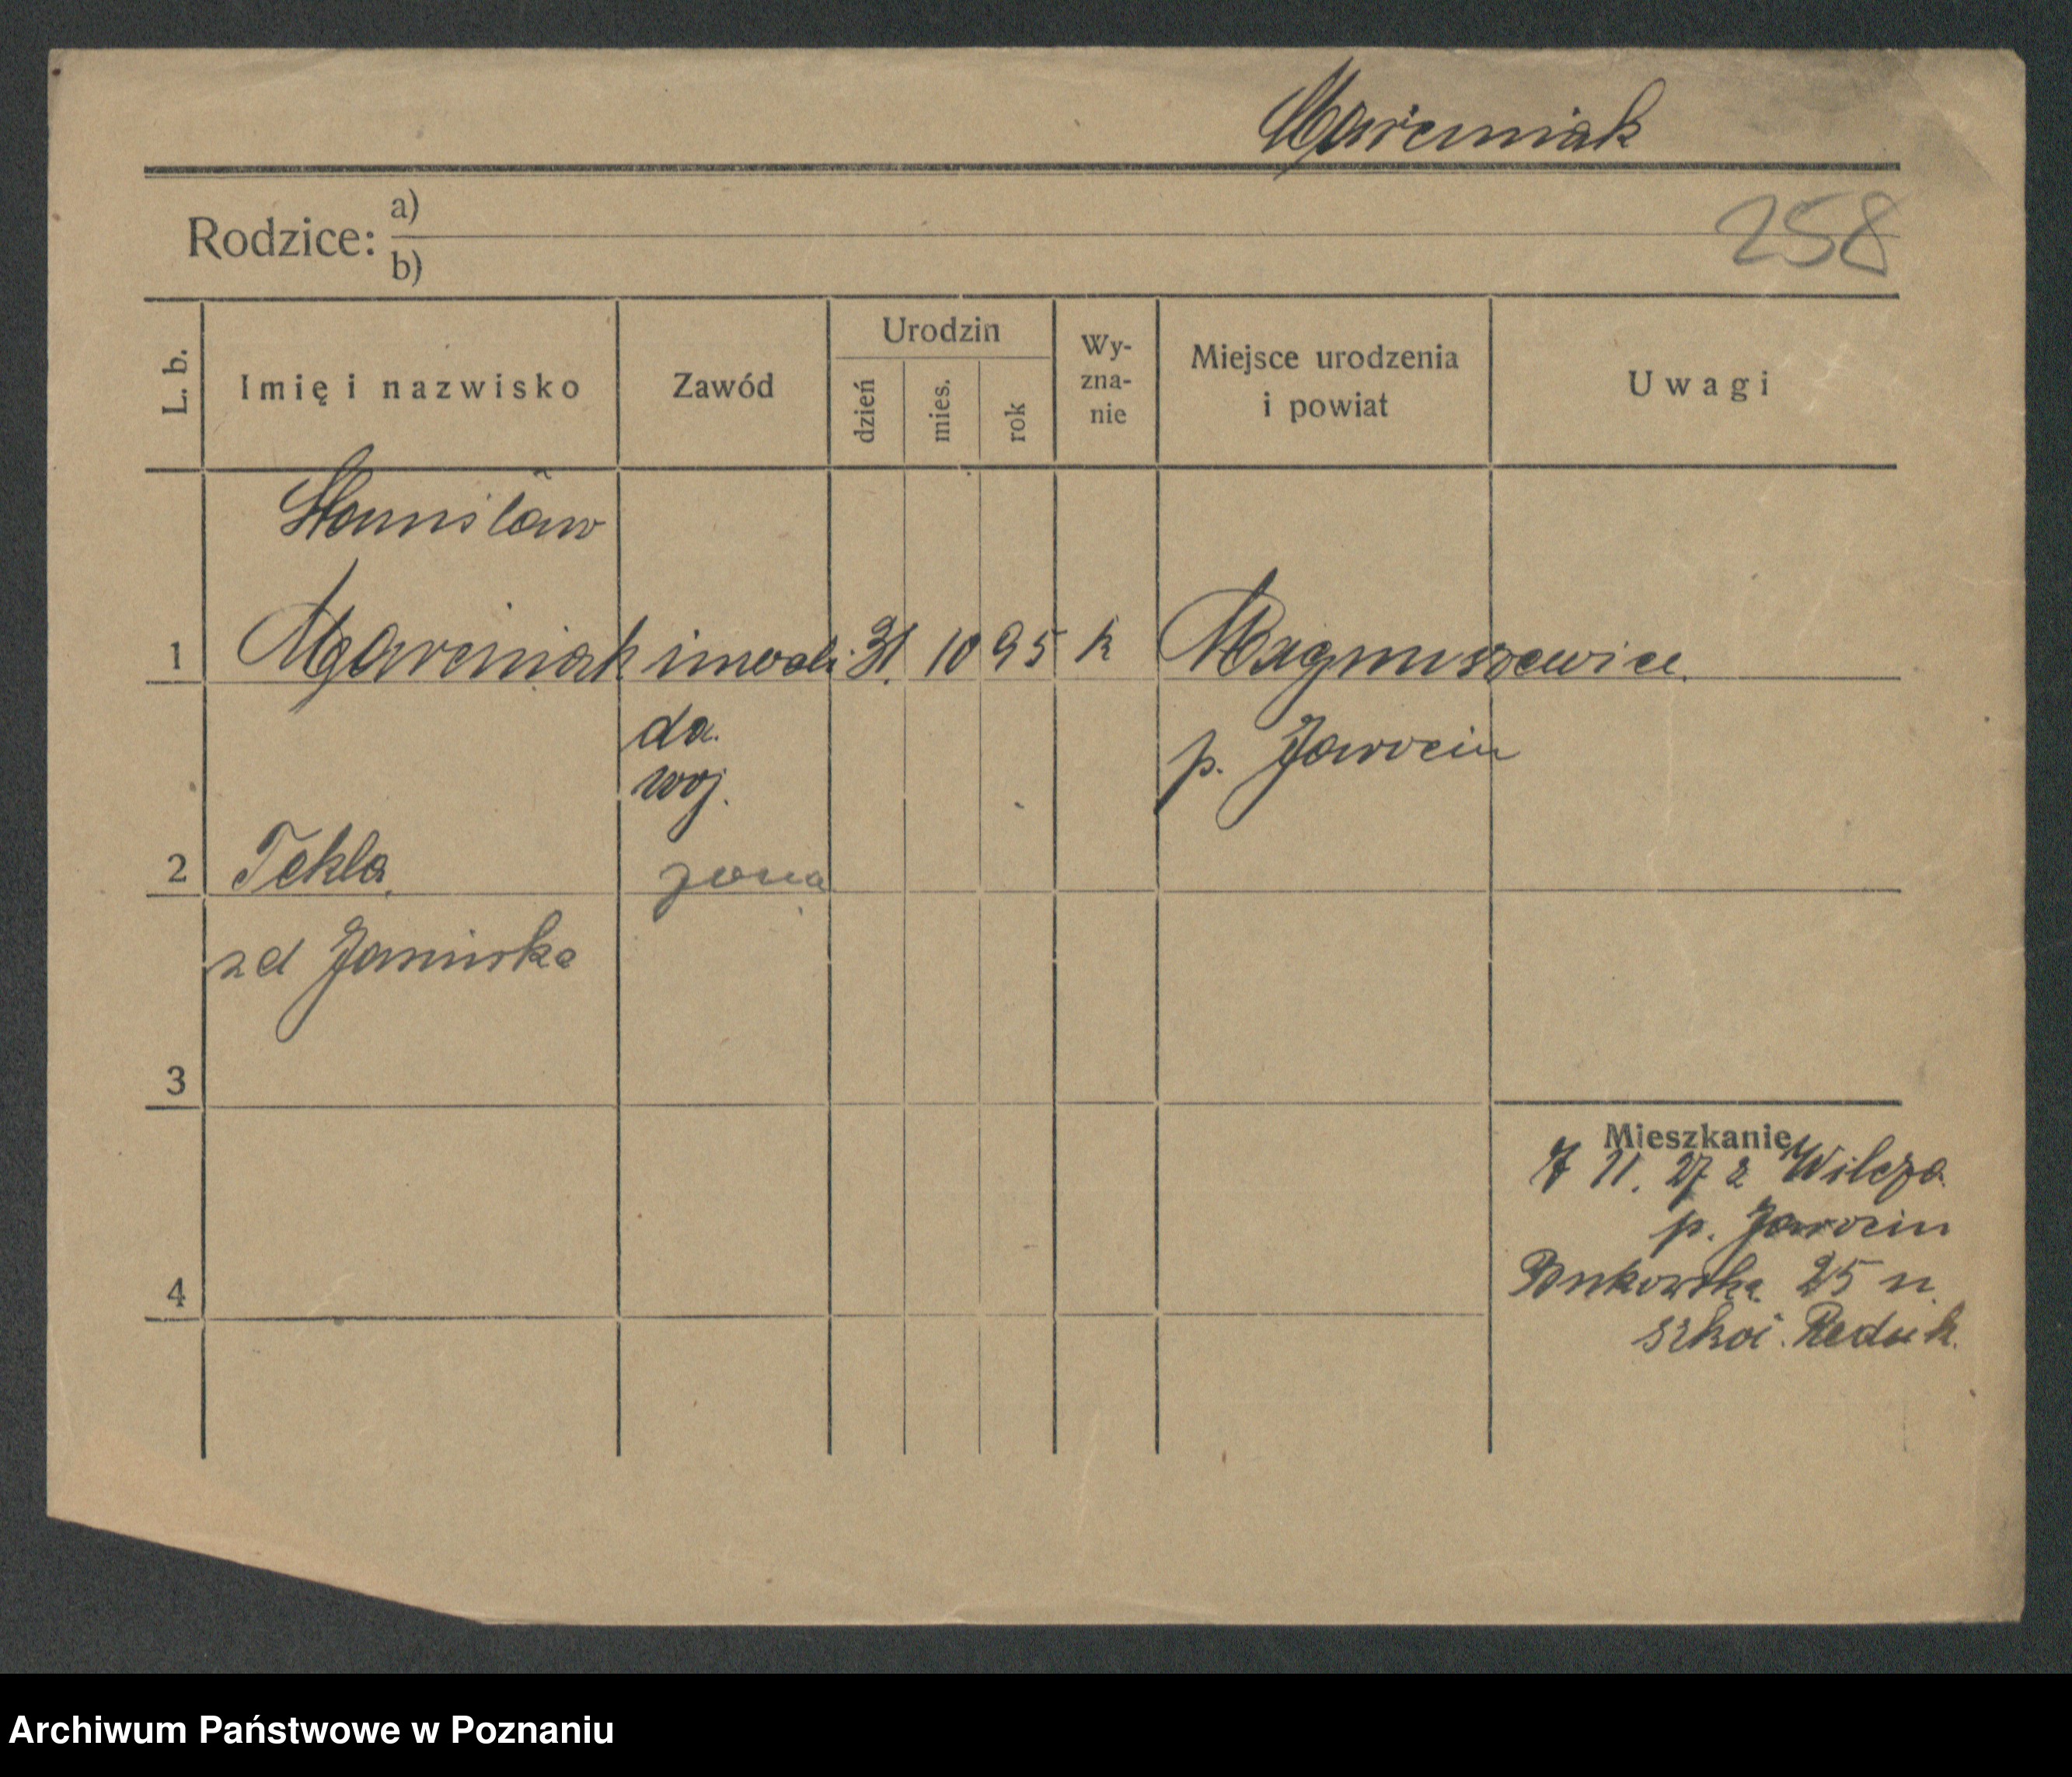 Marciniak
258
Rodzice: a)
b)
L. b. Imię i nazwisko Zawód Urodzin dzień mies. rok Wyznanie Miejsce urodzenia i powiat Uwagi
Stanisław
1 Marciniak inwali 31. 10 95 k Magnuszewice
da.
woj.
p. Jarocin
2 Tekla żona
zd Jasińska
3
Mieszkanie
7 11. 27 z Wilcza
p. Jarocin
4 Bukowska 25 n.
szkoi. Reduk.
Archiwum Państwowe w Poznaniu